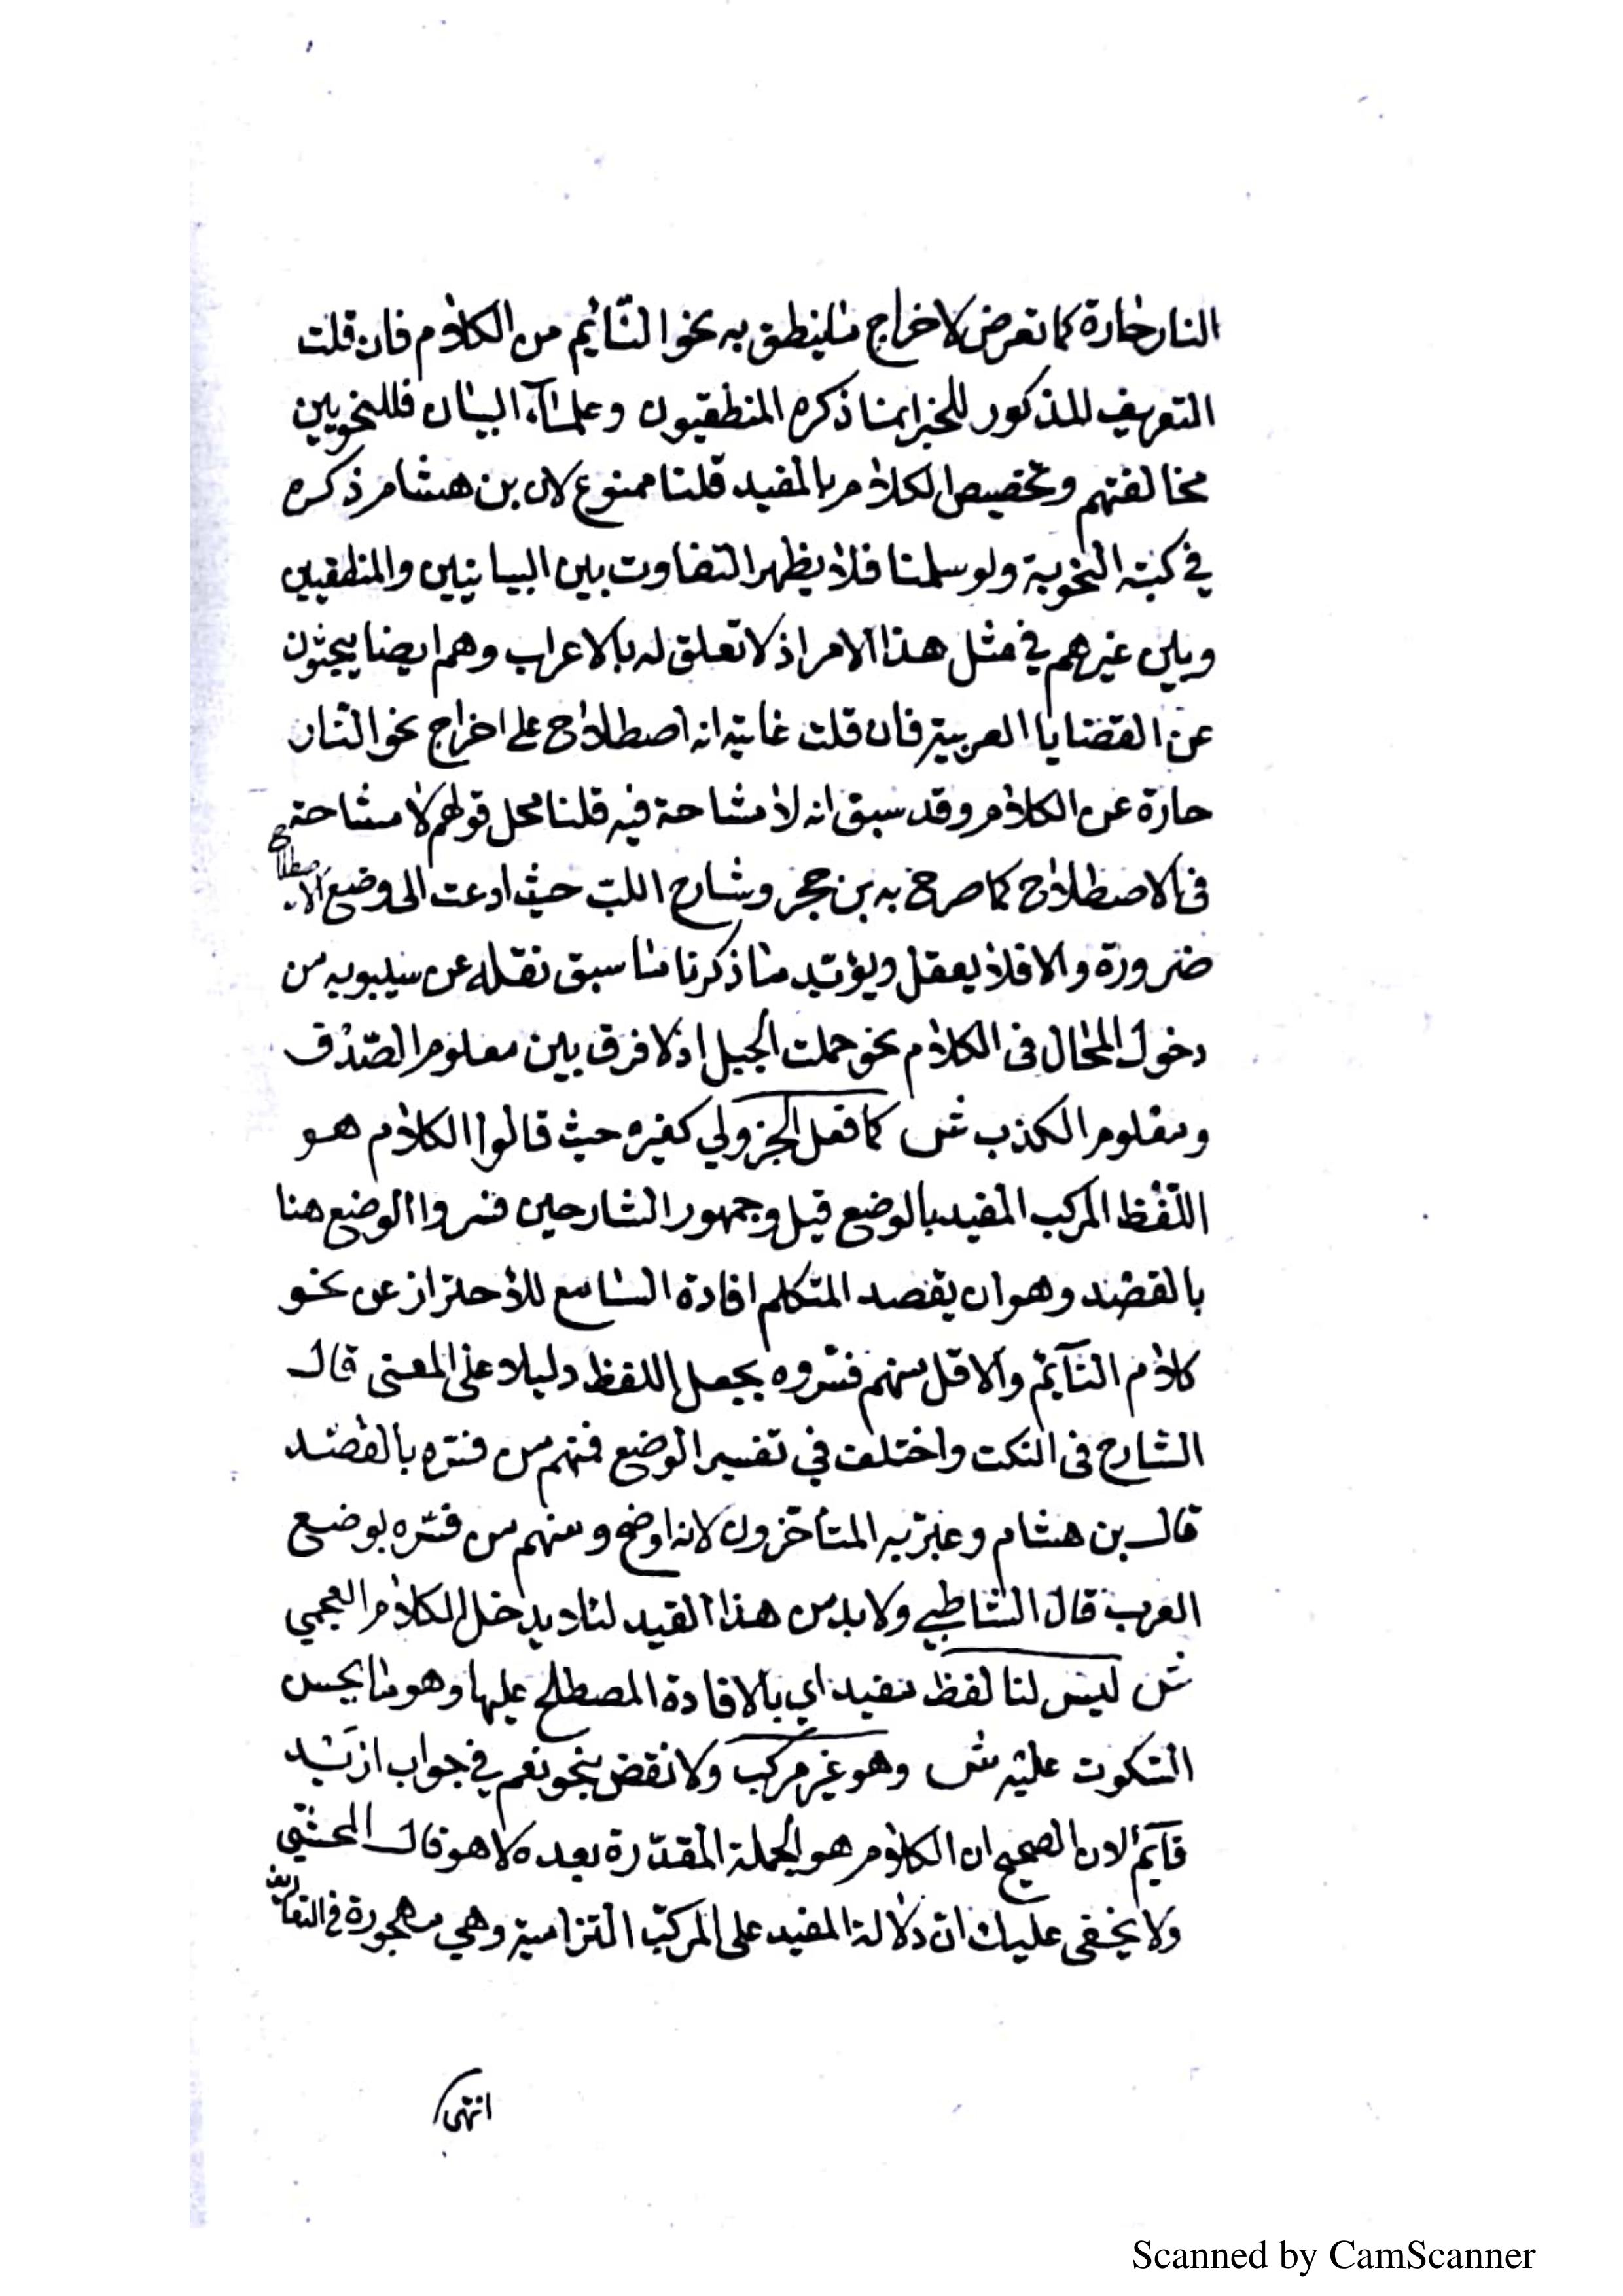 النار حارة كما تعرض لاخراج ما ينطق به نحو النائم من الكلام فان قلت
التعريف المذكور للخبر انما ذكره المنطقيون وعلماء البيان فللنحويين
مخالفتهم وتخصيص الكلام بالمفيد قلنا ممنوع لان بن هشام ذكره
في كتبه النحوية ولو سلمنا فلا يظهر التفاوت بين البيانيين والمنطقيين
وبين غيرهم في مثل هذا الامر اذ لا تعلق له بالاعراب وهم ايضا يبحثون
عن القضايا العربية فان قلت غايته انه اصطلاح على اخراج نحو النار
حارة عن الكلام وقد سبق انه لا مشاحة فيه قلنا محل قولهم لا مشاحة
في الاصطلاح كما صرح به بن حجر وشارح اللب حيث ادعت الى وضع الاصطلاح
ضرورة والا فلا يعقل ويؤيد ما ذكرنا ما سبق نقله عن سيبويه من
دخول المحال في الكلام نحو حملت الجبل اذ لا فرق بين معلوم الصدق
ومعلوم الكذب ش كما فعل الجزولي كغيره حيث قالوا الكلام هو
اللفظ المركب المفيد بالوضع قيل وجمهور الشارحين فسروا الوضع هنا
بالقصد وهو ان يقصد المتكلم افادة السامع للاحتراز عن نحو
كلام النائم والاقل منهم فسروه بجعل اللفظ دليلا على المعنى قال
الشارح في النكت واختلف في تفسير الوضع فمنهم من فسره بالقصد
قال بن هشام وعبر به المتأخرون لانه اوضح ومنهم من فسره بوضع
العرب قال الشاطبي ولا بد من هذا القيد لئلا يدخل الكلام العجمي
ش ليس لنا لفظ مفيد اي بالافادة المصطلح عليها وهو ما يحسن
السكوت عليه ش وهو غير مركب ولا نقض بنحو نعم في جواب ازيد
قآئم لان الصحيح ان الكلام هو الجملة المقدرة بعده لا هو قال المحشي
ولا يخفى عليك ان دلالة المفيد على المركب التزامية وهي مهجورة في التعاريف
انتهى
Scanned by CamScanner